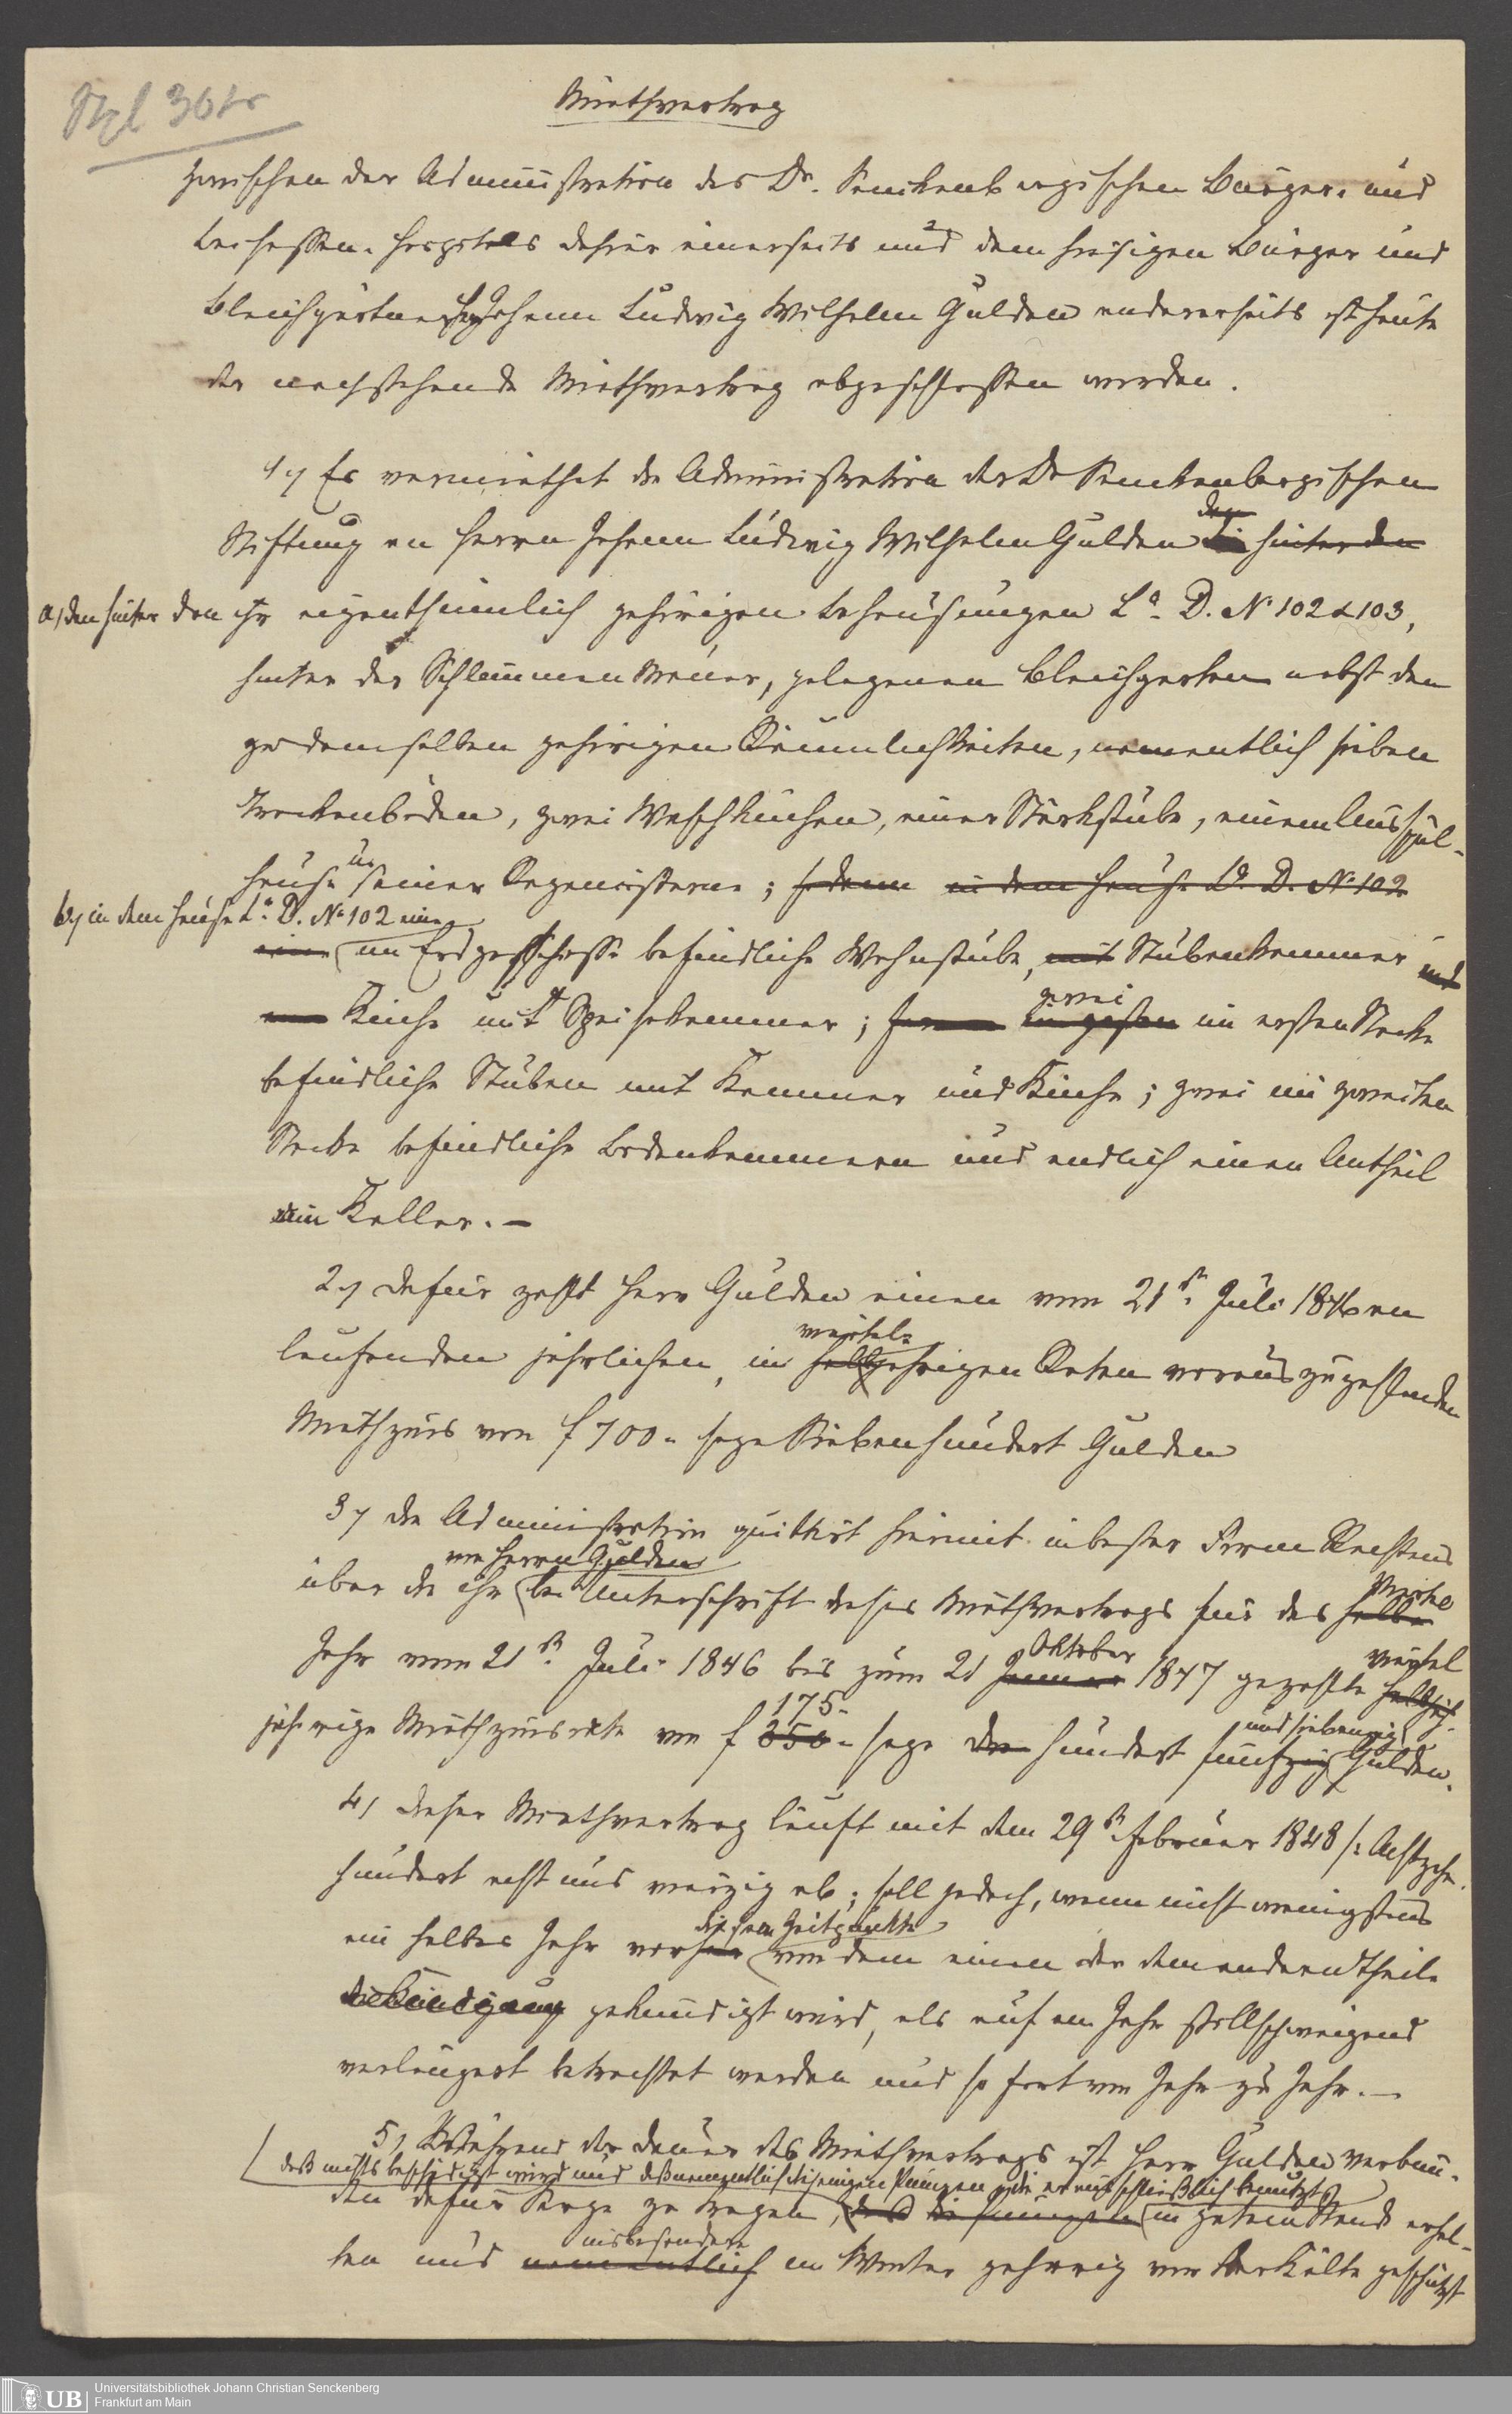 Stpl 30 kr
Miethvertrag
zwischen der Administration des Dr. Senckenbergischen Bürger- und
Beisassen-Hospitals dahier einerseits und dem hiesigen Bürger und
Bleichgärtner Johann Ludwig Wilhelm Gulden andererseits ist heute
der nachstehende Miethvertrag abgeschlossen worden.
1.) Es vermiethet die Administration der Dr Senckenbergischen
Stiftung an Herrn Johann Ludwig Wilhelm Gulden den hinter den
a) den hinter den ihr eigenthümlich gehörigen Behausungen La. D. No 102 & 103,
hinter der Schlimmen Mauer, gelegenen Bleichgarten nebst den
zu demselben gehörigen Räumlichkeiten, namentlich sieben
Trockenböden, zwei Waschküchen, einer Stärkstube, einem Ausspül-
hause u. einer Regencisterne; sodann in dem Hause La. D. No 102
b) in dem Hause La. D. No 102 eine
eine im Erdgeschosse befindliche Wohnstube, mit Stubenkammer und
Küche mit Speisekammer; ferner zwei im ersten Stocke
befindliche Stuben mit Kammer und Küche; zwei im zweiten
Stocke befindliche Bodenkammern und endlich einen Antheil
am Keller. —
2.) Dafür zahlt Herr Gulden einen vom 21n. Juli 1846 an
laufenden jährlichen, in viertel- halbjährigen Raten vorauszuzahlenden
Miethzins von f 700 - sage Siebenhundert Gulden
3) Die Administration quittirt hiermit in bester Form Rechtens
über die ihr von Herrn Gulden bei Unterschrift dieses Miethvertrags für das halbe Viertel
Jahr vom 21n. Juli 1846 bis zum 21 Januar Oktober 1847 gezahlte halbjäh- viertel
jährige Miethzinsrate von f 350 175 - sage drei hundert fünfzig und siebenzig Gulden.
4) Dieser Miethvertrag läuft mit dem 29n. Februar 1848 /: Achtzehn-
hundert acht und vierzig ab; soll jedoch, wenn nicht wenigstens
ein halbes Jahr vorher diesem Zeitpunkte von dem einen oder dem anderen Theile
die Kündigung gekündigt wird, als auf ein Jahr stillschweigend
verlängert betrachtet werden und so fort von Jahr zu Jahr. —
5) Während der Dauer des Miethvertrags ist Herr Gulden verbun-
daß nichts beschädigt wird und daß namentlich diejenigen Pumpen die er ausschließlich benutzt
den dafür Sorge zu tragen, daß die Pumpen in gutem Stand erhal-
ten und namentlich insbesondere im Winter gehörig vor der Kälte geschützt
UB
Universitätsbibliothek Johann Christian Senckenberg
Frankfurt am Main